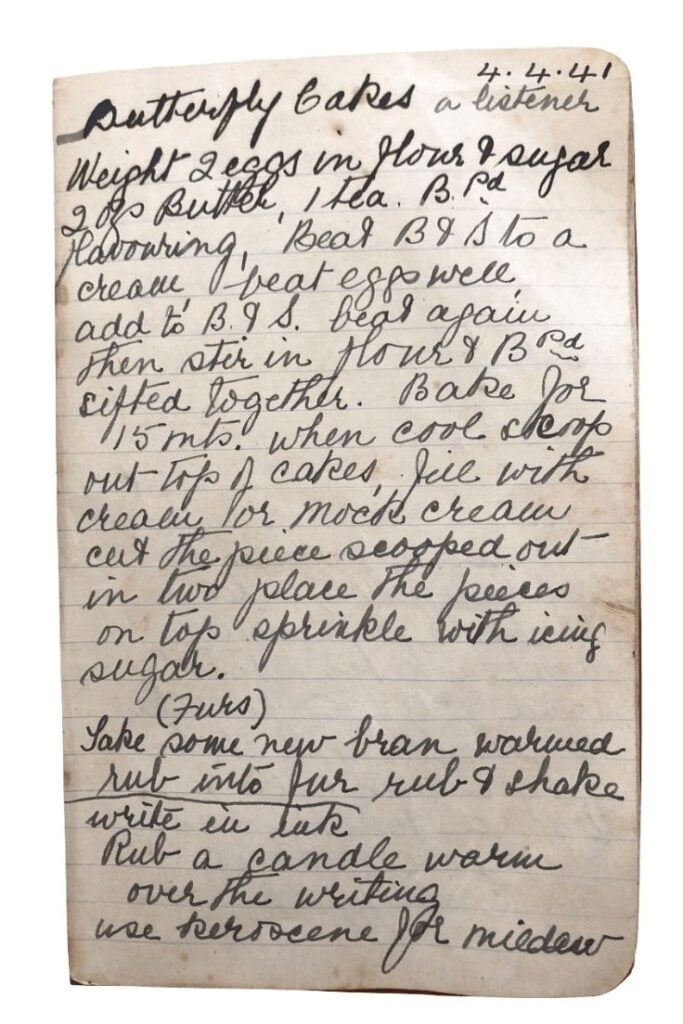 4.4.41
Butterfly Cakes a listener
Weight 2 eggs in flour & sugar
2 ozs Butter, 1 tea. B.Pd
flavouring, Beat B & S to a
cream, beat eggs well,
add to B. & S. beat again
then stir in flour & B Pd
sifted together. Bake for
15 mts. when cool scoop
out top of cakes, fill with
cream, or mock cream
cut the piece scooped out
in two place the pieces
on top sprinkle with icing
sugar.
(Furs)
Take some new bran warmed
rub into fur rub & shake
write in ink
Rub a candle warm
over the writing
use keroscene for mildew